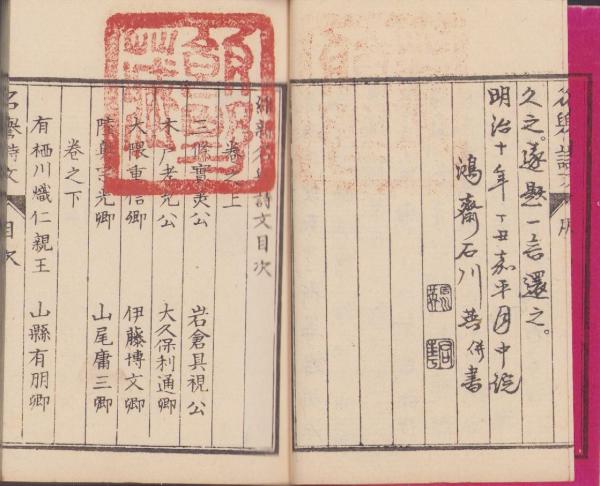 久之。遂題一言還之。
明治十年丁丑嘉平月中浣
鴻齋石川英併書
詩文目次
卷之上
三條實美公 岩倉具視公
木戶孝允公 大久保利通卿
大隈重信卿 伊藤博文卿
陸奧宗光卿 山尾庸三卿
卷之下
有栖川熾仁親王 山縣有朋卿
名譽詩文 目次